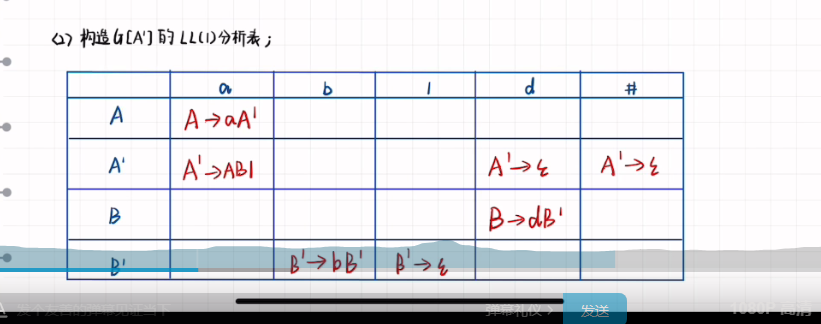 (2) 构造G[A']的LL(1)分析表;
a b l d #
A A→aA'
A' A'→ABl A'→ε A'→ε
B B→dB'
B' B'→bB' B'→ε
弹幕礼仪 > 发送